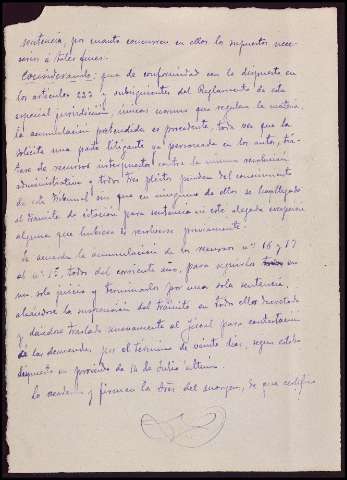 sentencia, por cuanto concurren en ellos los supuestos nece-
sarios á tales fines.
Considerando: que de conformidad con lo dispuesto en
los artículos 222 y subsiguientes del Reglamento de esta
especial jurisdicción, únicas normas que regulan la materia,
la acumulación pretendida es procedente, toda vez que la
solicita una parte litigante ya personada en los autos, trá-
tase de recursos interpuestos contra la misma resolución
administrativa y todos tres pleitos penden del conocimiento
de este Tribunal sin que en ninguno de ellos se haya llegado
al trámite de citación para sentencia ni esté alegada excepción
alguna que hubiese de resolverse previamente.
Se acuerda la acumulación de los recursos nos 16 y 17
al nº 15, todos del corriente año, para seguirlos en
un solo juicio y terminarlos por una sola sentencia,
alzándose la suspensión del trámite en todos ellos decretada
y dándose traslado nuevamente al fiscal para contestación
de las demandas, por el término de veinte días, según estaba
dispuesto en providencia de 14 de Julio último.
Lo acuerdan y firman los Sres del margen, de que certifico